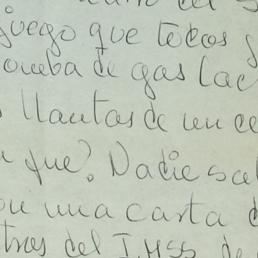 juego que todos
bomba de gas lac
llantas de un ce
fue? Nadie sa
una carta d
tras del IMSS de